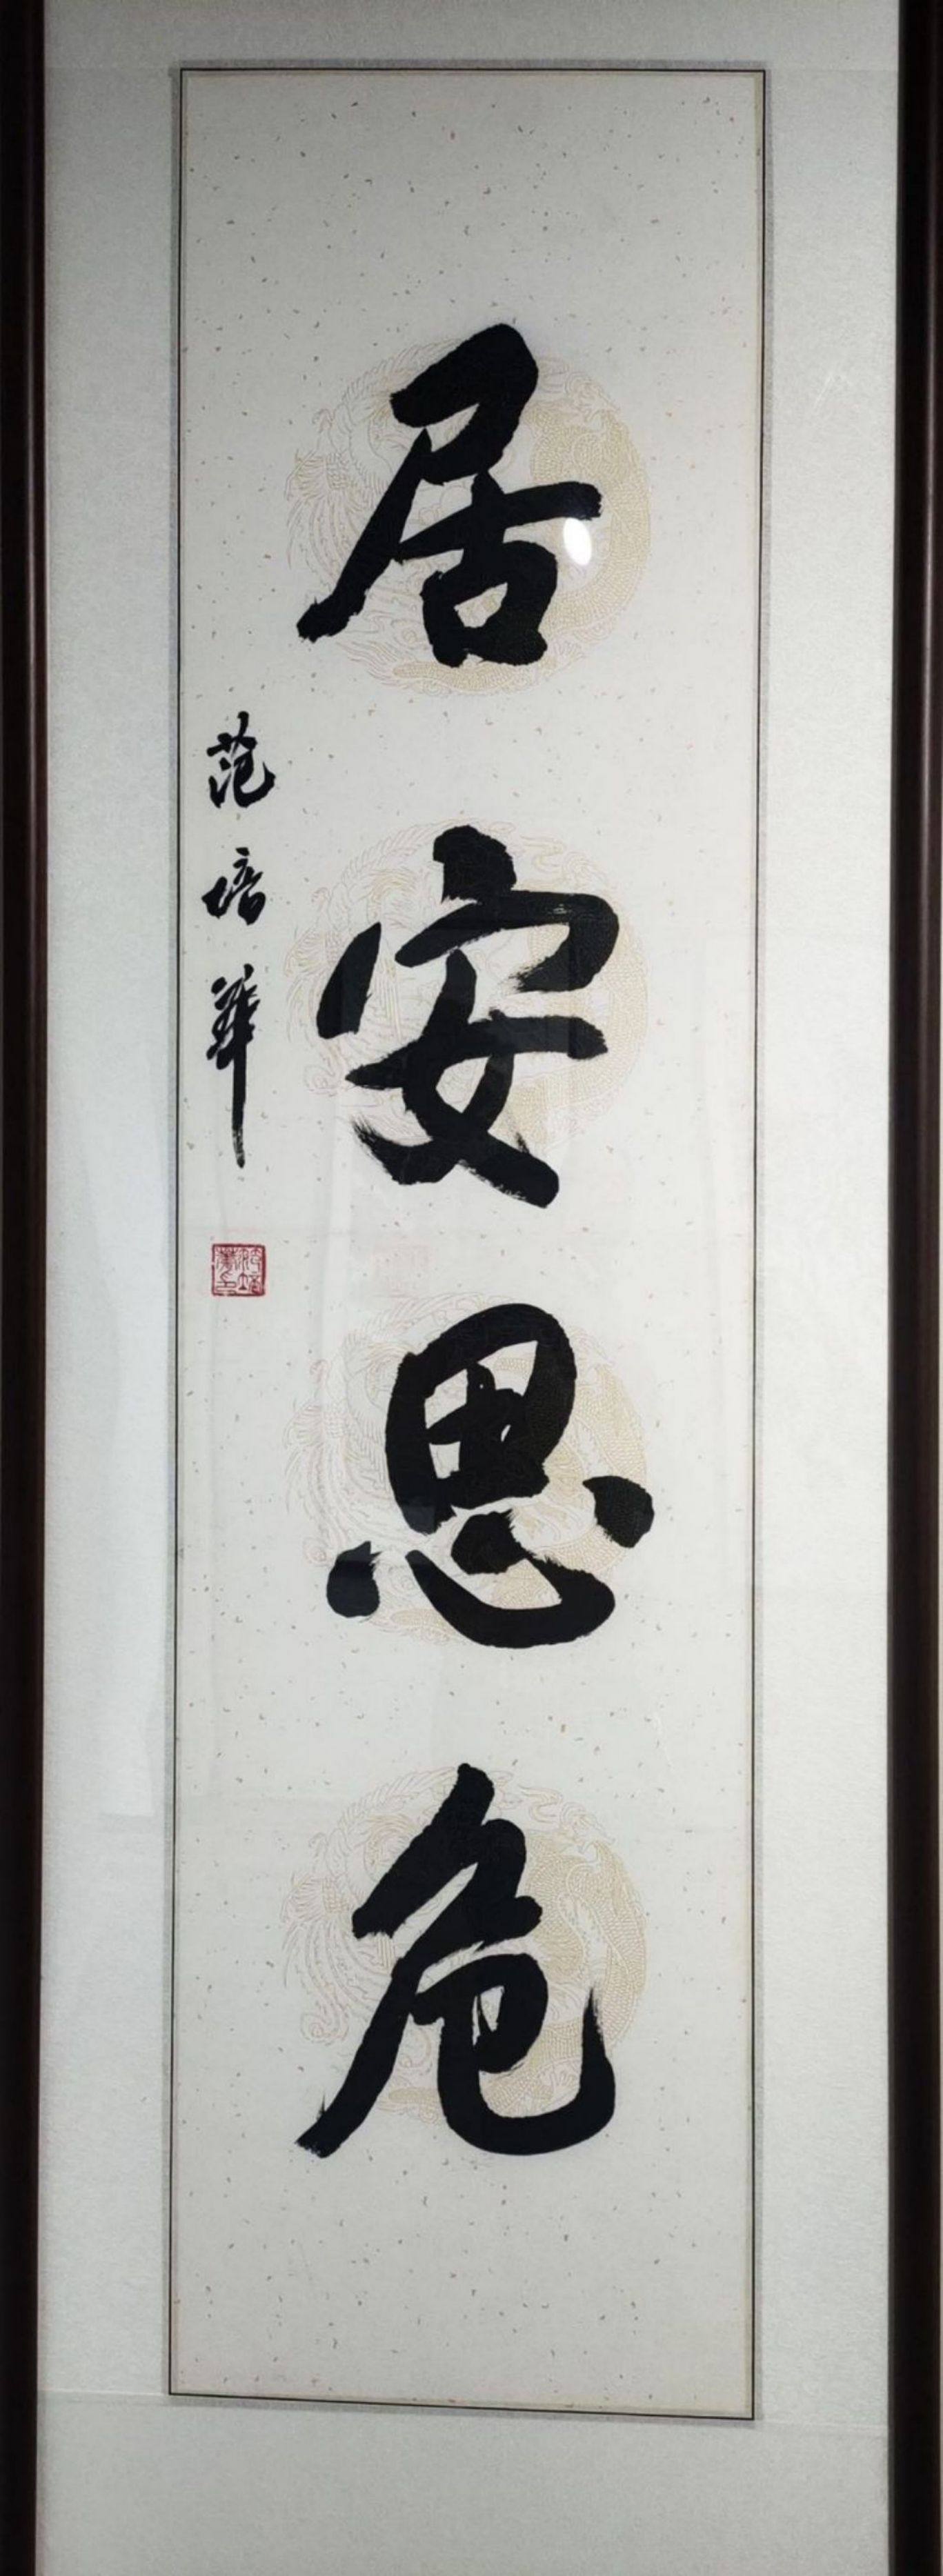 居安思危
范培華